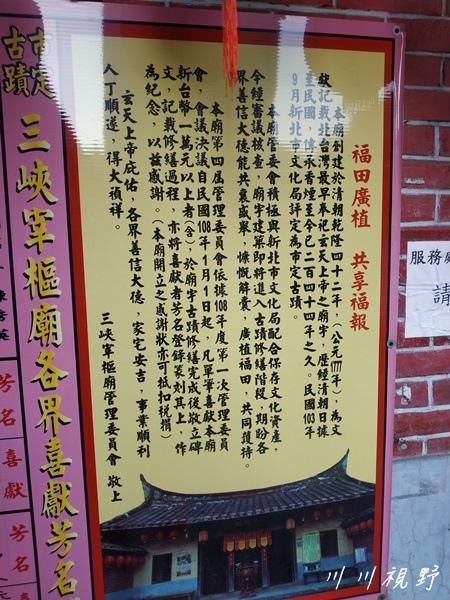 福田廣植 共享福報
本廟創建於清朝乾隆四十二年，(公元1777年)，為文
獻記載北台灣最早奉祀玄天上帝之廟宇，歷經清朝日據
至民國，傳承香煙至今已二百四十四年之久。民國103年
9月新北市文化局評定為市定古蹟。
本廟管委會積極與新北市文化局配合保存文化資產，
令經審議核查，廟宇建築即將進入古蹟修繕階段，期盼各
界善信大德能共襄盛舉，慷慨解囊，廣植福田，共同護持。
本廟第四屆管理委員會依據108年度第一次管理委員
會，會議決議自民國108年1月1日起，凡單筆喜獻本廟
新台幣一萬元以上者(含)，於廟宇古蹟修繕完成後敬立碑
文，記載修繕過程，亦將喜獻者芳名登錄篆刻其上，作
為紀念，以茲感謝。(本廟開立之感謝狀亦可抵扣稅捐)
玄天上帝庇佑，各界善信大德，家宅安吉，事業順利
人丁順遂，得大禎祥。
三峽宰樞廟管理委員會 敬上
市定
古蹟
三峽宰樞廟各界喜獻芳名
芳名
喜獻
芳名
服務處
請
川川視野